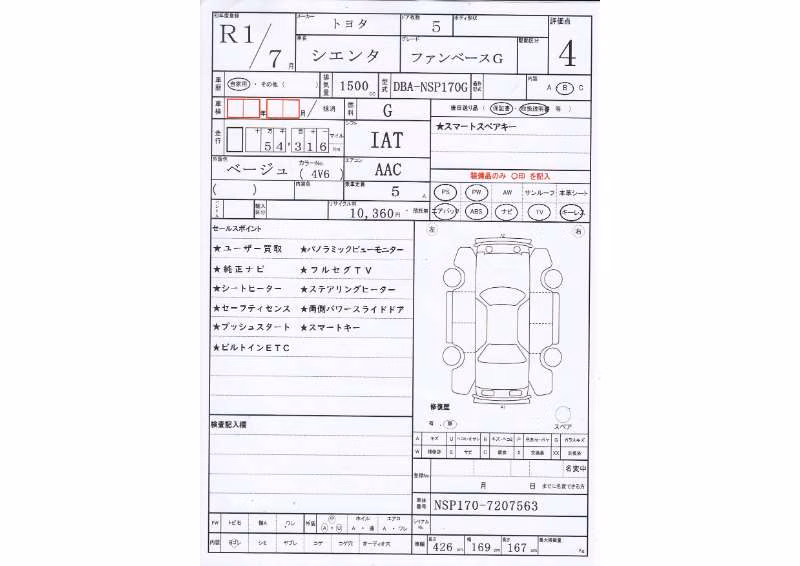 初年度登録 メーカー トヨタ ドア枚数 5 ボディ形状 評価点
R1/7月 車名 シエンタ グレード ファンベースG 駆動区分 4
車歴 自家用・その他( ) 排気量 1500cc 型式 DBA-NSP170G 内装 A B C
車検 年 月/ 抹消 燃料 G 後日送り品( 保証書・取扱説明書 等 )
走行 十万千百十 54,316 マイル km シフト IAT ★スマートスペアキー
外装色 ベージュ カラーNo. (4V6) エアコン AAC 装備品のみ ○印 を記入
( ) 内装色 乗車定員 5人 PS PW AW サンルーフ 本革シート
輸入 リサイクル料 10,360円 エアバック ABS ナビ TV キーレス
セールスポイント 左 右
★ユーザー買取 ★パノラミックビューモニター
★純正ナビ ★フルセグTV
★シートヒーター ★ステアリングヒーター
★セーフティセンス ★両側パワースライドドア
★プッシュスタート ★スマートキー
★ビルトインETC
修復歴
有・無 スペア
検査記入欄
名変中
登録No 月 日 までに名変できる方
車体番号 NSP170-7207563
FW トビ石 ワレ 外装 ホイル エアロ シリアルNo
A・U A・ワレ
内装 シミ ヤブレ コゲ コゲ穴 オーディオス 車輌 長さ 426cm 幅 169cm 高さ 167cm 最大積載量 Kg